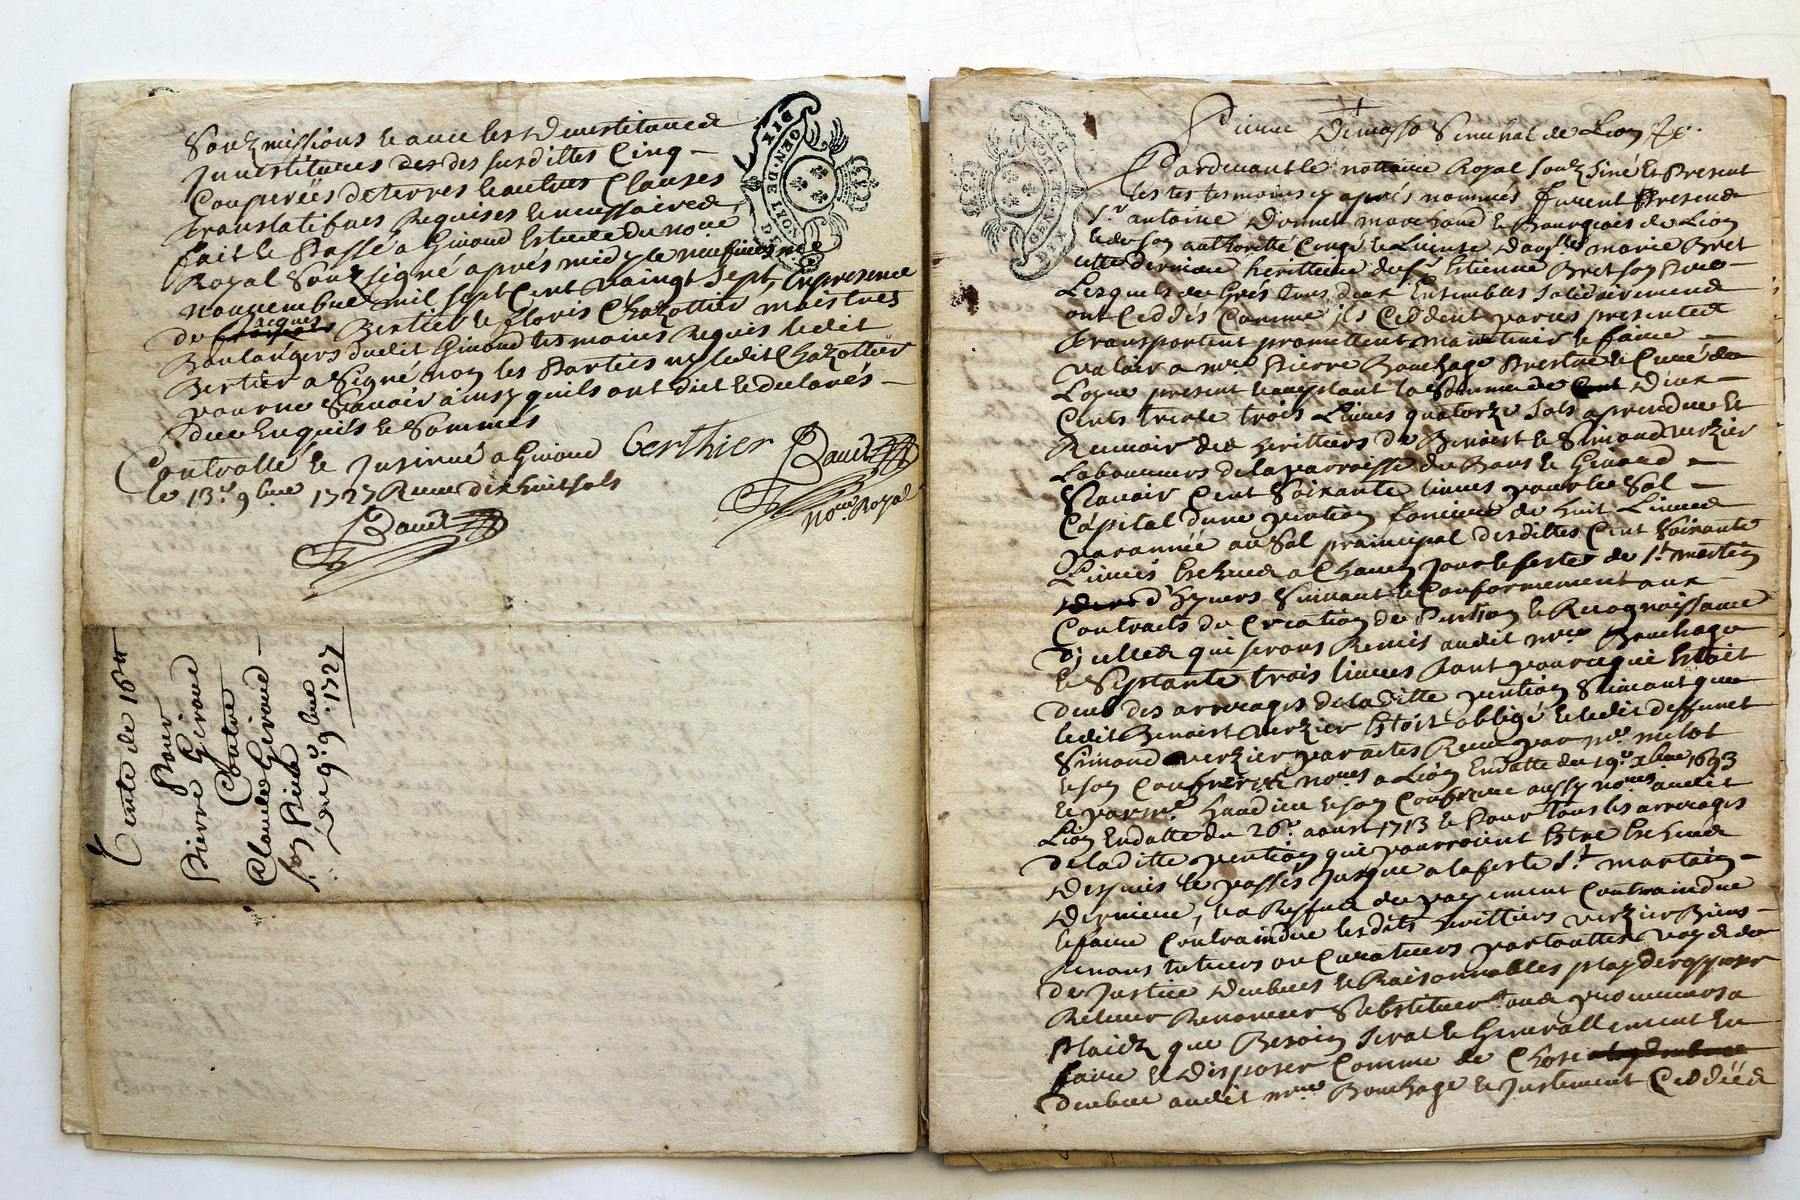 Souzmissions et avec les devestitures
Jnvestitures des des susdittes Cinq
Couperées de terres et autres Clauses
translatifves Requises et necessaires
fait et Passé a Givord Estude du no.re
Royal Souzsigné après midy le neufiesme
novembre mil sept Cent vaingt sept, En presence
de Jacques Bertier et floris Chazottier maistres
Boulangers dudit Givord tesmoins Requis ledit
Bertier a Signé non les Parties ny ledit Chazottier
pour ne Scavoir ainsy quils ont dit et declarés
duement Enquis et Sommés
Controllé et Jnsinué a Givord
le 13.e 9bre 1727 Receu dix huit sols
Berthier
no.re Royal
GEN. DE LYON
DIX
Vente de 16
Pour
Pierre Giraud
Contre
Claude Giraud
Son Frère
Du 9.e 9bre 1727
Pierre Senechal de Lion &c.
Pardevant le nottaire Royal souz siné et Present
les tesmoins cy après nommés furent Presens
S.r antoine marchand et Bourgeois de Lion
et de son authorité Congé et Licence marie Bret
cette derniere herittiere de feu Estienne Bret son Pere
Lesquels de Grés tous deux Ensembles solidairement
ont Ceddés Comme ils Ceddent par ces presentes
transportent promettent maintenir et faire
valoir a m.re Pierre Bouchage Prestre et Curé de
present et acceptant la Somme de deux
Cents trente trois Livres quatorze sols a prendre et
Recevoir des herittiers de Benoist et Simond Verzier
Laboureurs de la parroisse de et Givord
Scavoir Cent Soixante livres pour le Sol
Capital dune pention fonciere de huit Livres
par année au Sol principal desdittes Cent Soixante
Livres a Chacun jour et festes de S.t martin
d'hyvers Suivant et Conformement aux
Contracts de Creation de Pention et Recognoissance
d'jcelles qui serons Remis audit m.re Bouchage
et Septante trois livres tant pour ce qui Estoit
deub des arrerages de la ditte pention Suivant que
ledit Benoist Verzier Estoit obbligé et ledit deffunct
Simond Verzier par actes Receu par m.e
et son Confrere no.res a Lion En datte du 19.e xbre 1693
et par m.e et son Confrere aussy no.res audit
Lion En datte du 26.e aoust 1713 et pour tous les arrerages
de la ditte pention qui pourroient Estre
despuis le passés jusque a la feste S.t martin
derniere, au Reffus de payement Contraindre
et faire Contraindre lesdits herittiers Verzier Biens
tenans tuteurs ou Curateurs par touttes voyes
de justice deubues et Raisonnables playder opposer
Renoncer Substituer procureurs a
Plaids que Besoin serat et Generallement En
faire et disposer Comme de Chose
deubue audit m.re Bouchage et justement Ceddée